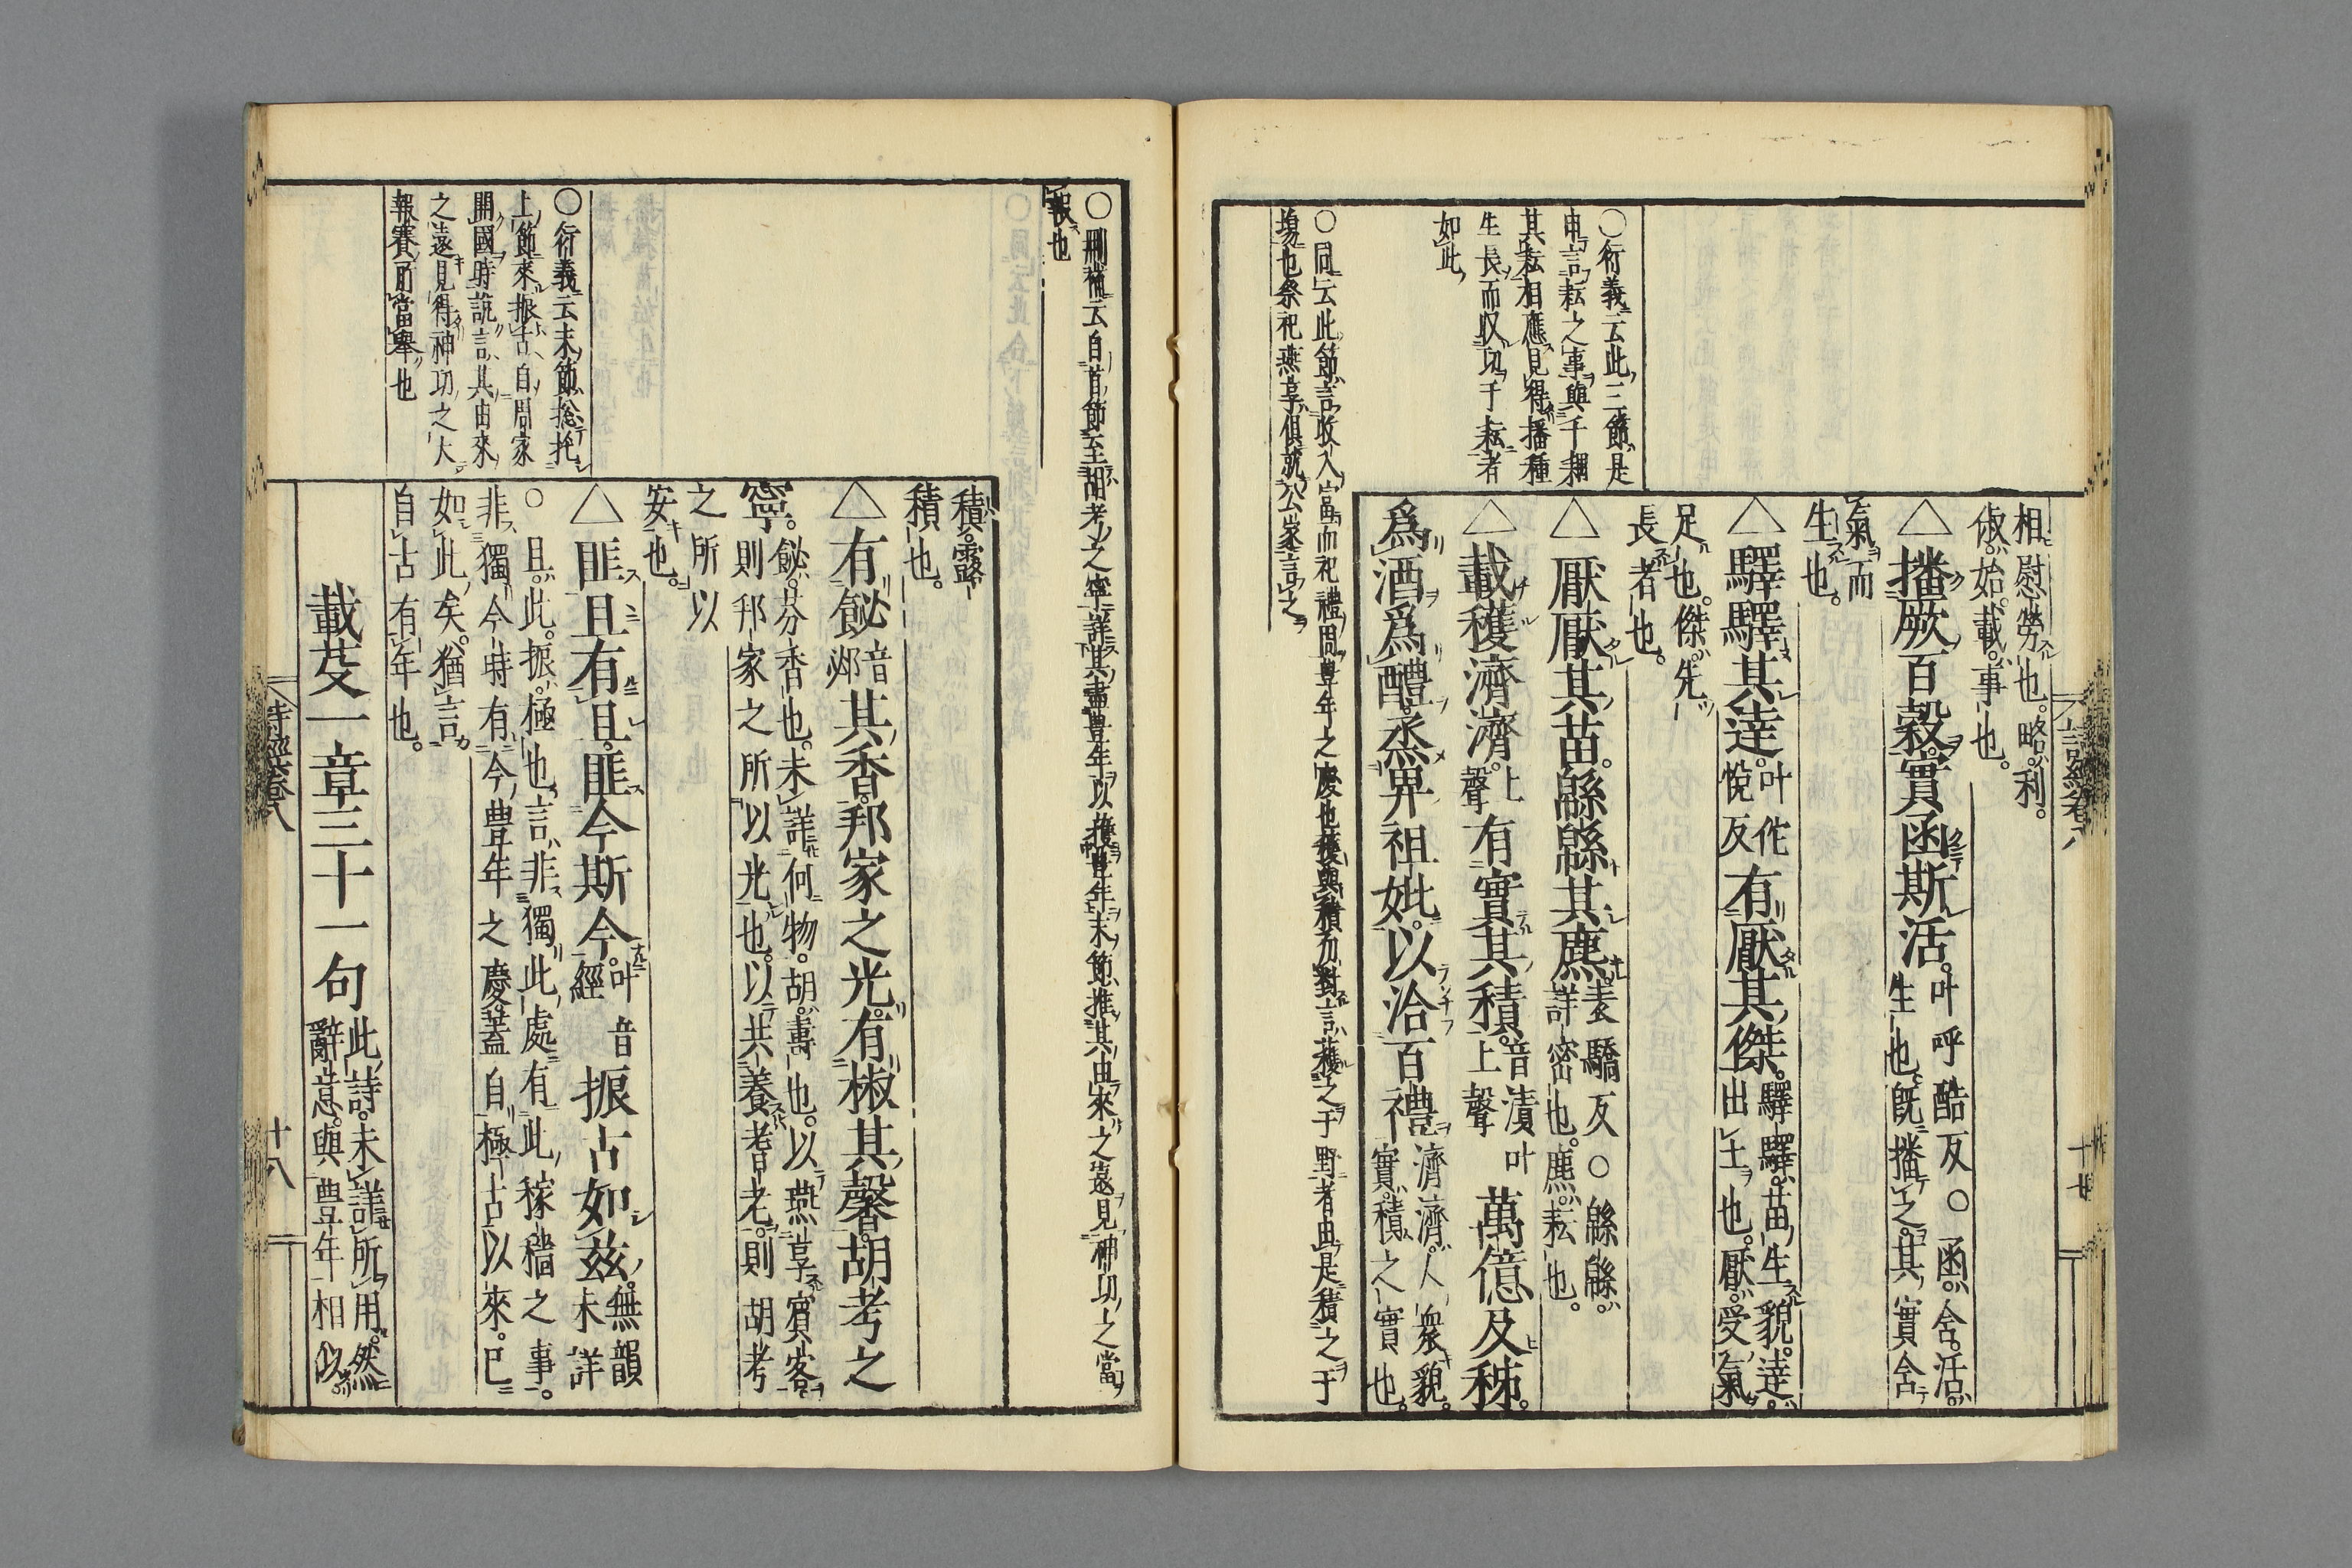 相慰勞也。略。利。
俶。始。載。事也。
△播厥百穀。實函斯活。叶呼酷反○函。含。活。
生也。旣播之。其實含
氣而
生也。
△驛驛其達。叶佗悅反有厭其傑。驛驛。苗生貌。達。
出土也。厭。受氣
足也。傑。先
長者也。
△厭厭其苗。緜緜其麃。表驕反○緜緜。
詳密也。麃。耘也。
△載穫濟濟。上聲有實其積。音漬叶上聲萬億及秭。
爲酒爲醴。烝畀祖妣。以洽百禮濟濟。人衆貌。
實。積之實也。
○衍義云此三節是
申言耘之事與千耦
其耘相應見得播種
生長而収功于耘者
如此
○同云此節言收入富而祀禮周豊年之慶也穫與積亦對言穫之于野者由是積之于
場也祭祀燕享俱就公家言之
積。露
積也。
△有飶音邲其香。邦家之光。有椒其馨。胡考之
寧。飶。芬香也。未詳何物。胡。壽也。以燕享賓客
則邦家之所以光也。以共養耆老。則胡考
之所以
安也。
△匪且有且。匪今斯今。叶音經振古如玆。無韻未詳
○且。此。振。極也。言。非獨此處有此稼穡之事。
非獨今時有今豊年之慶蓋自極古以來。已
如此矣。猶言
自古有年也。
載芟一章三十一句此詩。未詳所用。然
辭意。與豊年相似。
○刪補云自首節至胡考之寧詳其盡豊年以穫豊年末節推其由來之遠見神功之當
報也
○衍義云末節總托
上節來振古自周家
開國時說言其由來
之遠見得神功之大
報賽所當舉也
詩經卷八
十七
詩經卷八
十八